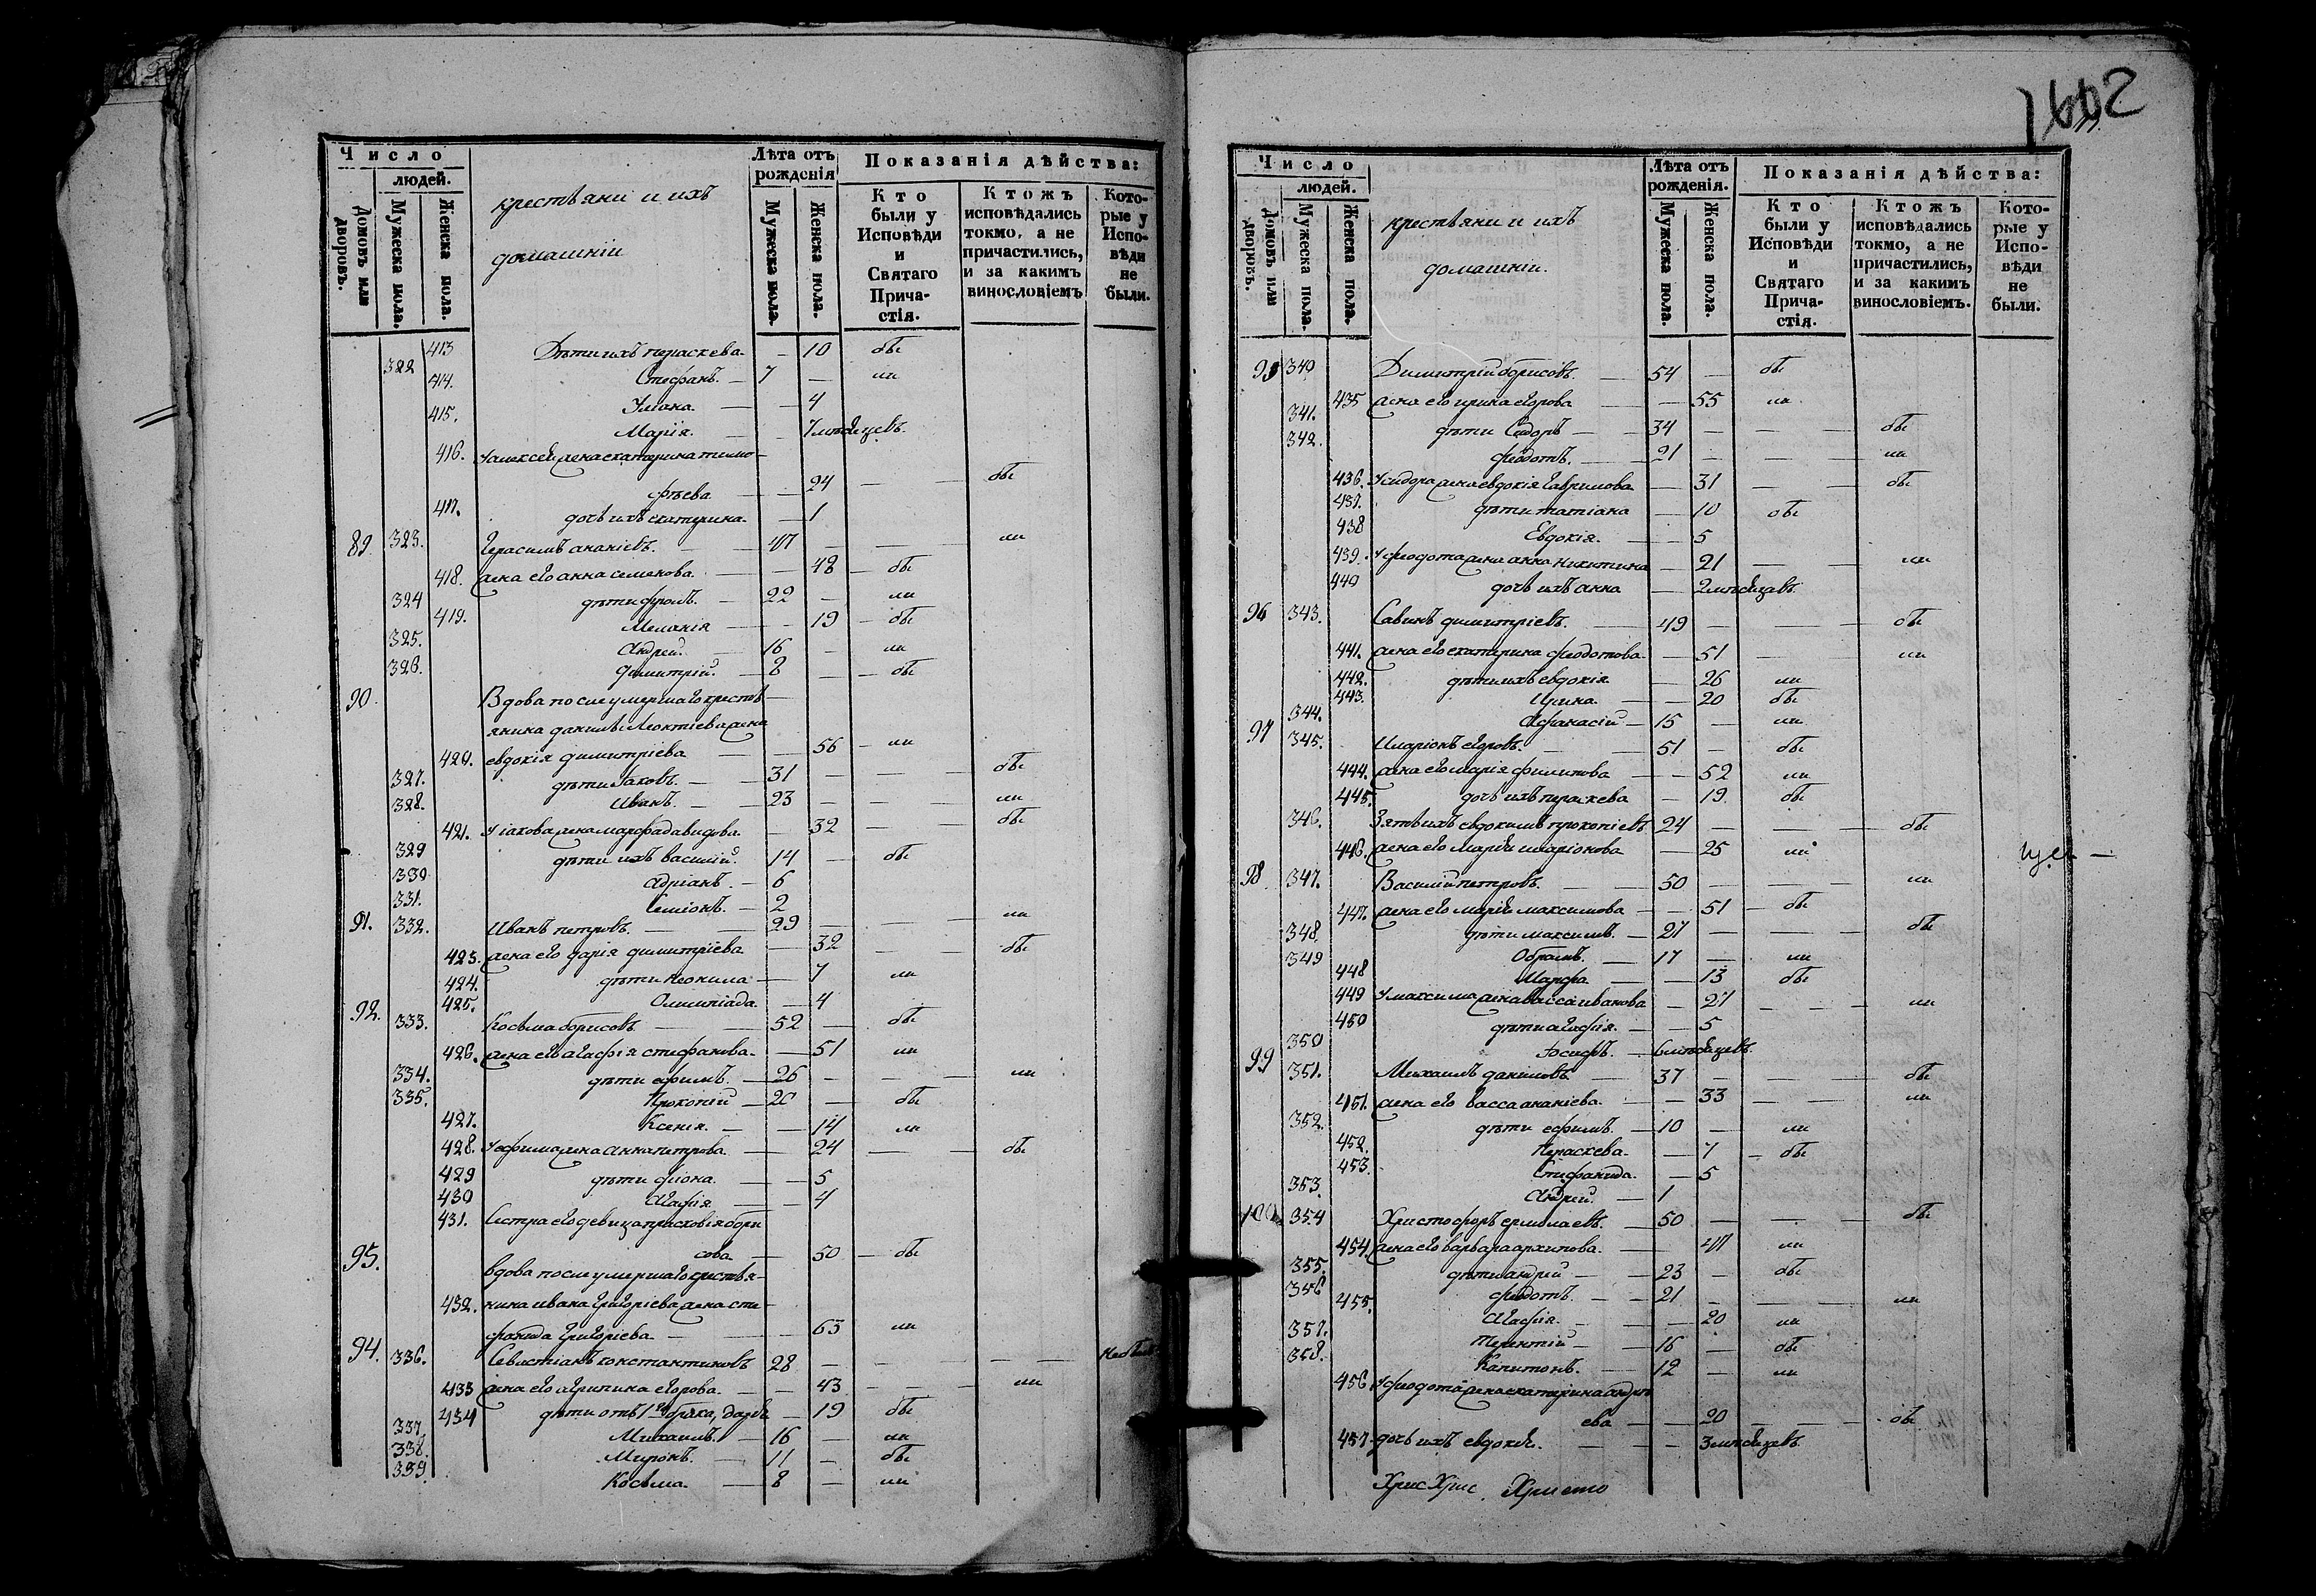 1602
Число
людей.
Домовъ или дворовъ.
Мужеска пола.
Женска пола.
крествяни и ихъ
домашнiи
Лѣта отъ рожденiя
Мужеска пола.
Женска пола.
Показанiя дѣйства:
Кто были у Исповѣди и Святаго Причастiя.
Ктожъ исповѣдались токмо, а не причастились, и за какимъ винословiемъ
Которые у Исповѣди не были.
413 Дѣти ихъ пераскева — 10 бы
322 Стефанъ. — 7 — ли
414. Улiана. — — 4
415. Марiя. — — 7 мѣсяцевъ.
416. У алексея жена екатерина тимо-
фѣева — — 24 — — бы
417. дочь ихъ екатерина — 1
89. 323. Герасимъ ананiевъ. — — 47 — — — ли
418. жена его анна семенова. — — 48 — бы
324 дѣти фролъ. — 22 — ли
419. Меланiя — — 19 — бы
325. Андрей. — 16 — ли
326. Димитрiй. — 2 — — бы
90. Вдова после умершаго крествь-
янина данилы Леонтiева жена
420. евдокiя димитрiева — — 56 — ли
327. дѣти Iаковъ. — — 31 — — — бы
328. Иванъ. — — 23 — — — ли
421. У iакова жена марфа давидова. — 32 — — бы
329 дѣти ихъ василiй. 14 — бы
330 адрiанъ. — 6
331. Семiонъ. — 2
91. 332. Иванъ петровъ. — — 29 — — — ли
423. жена его дарiя димитрiева — 32 — — бы
424. дѣти неонила — — 7 ли
425. Олимпiада — 4
92. 333. Косьма борисовъ — — 52 — бы
426. жена его агафiя стефанова. — 51 ли
334. дѣти ефимъ. — 26 — — — ли
335. Прокопiй — 20 — бы
427. Ксенiя. — — 14 ли
428. У ефима жена анна петрова. — 24 — — бы
429 дѣти фiона. — — 5
430 Агафiя — — 4
431. Сестра его девица прасковiя бори
сова — 50 — бы
93. вдова после умершаго крествя-
432. нина ивана григорiева жена сте-
фанида григорiева — — 63 ли
94. 336. Севастiанъ константиновъ 28 — — — — не былъ
433 жена его агрипина егорова. — — 43 — — ли
434 дѣти отъ 1го брака, дарiя — 19 бы
337. Михаилъ. — 16 — ли
338. Миронъ. — 11 — бы
339. Косьма. — 8 — ли
Число
людей.
Домовъ или дворовъ.
Мужеска пола.
Женска пола.
крествяни и ихъ
домашнiи.
Лѣта отъ рожденiя.
Мужеска пола.
Женска пола.
Показанiя дѣйства:
Кто были у Исповѣди и Святаго Причастiя.
Ктожъ исповѣдались токмо, а не причастились, и за какимъ винословiемъ.
Которые у Исповѣди не были.
95 340 Димитрiй борисовъ. — 54 — бы
435 жена его ирина егорова — — 55 ли
341. дѣти Сидоръ — — 34 — — — бы
342. феодотъ. — 21 — — — ли
436. У сидора жена евдокiя гаврилова — 31 — — бы
437. дѣти татiана — 10 бы
438 Евдокiя. — — 5
439. У феодота жена анна никитина — 21 — — ли
440 дочь ихъ анна — 2 мѣсяцевъ
96 343. Савинъ димитрiевъ. — 49 — — — бы
441. жена его екатерина феодотова. — 51 — ли
442. дѣти ихъ евдокiя — 26 ли
443. Ирина. — — 20 бы
344. Афанасiй — 15 — ли
97 345. Иларiонъ егоровъ. — — 51 — бы
444. жена его марiя филипова — — 52 ли
445. дочь ихъ пераскева — 19. бы
346. Зять ихъ евдокимъ прокопiевъ 24 — — — бы
446. жена его марiя иларiонова — 25 ли
98. 347. Василiй петровъ. — — 50 — — — ли
447. жена его марiя максимова — — 51 — бы
348. дѣти максимъ. — 27 — — — бы
349 Обрамъ. — 17 — ли
448 Марфа. — — 13 бы
449 У максима жена васса иванова — 27 — — — ли
450 дѣти агафiя. — — 5
350 Iосифъ. — 6 мѣсяцевъ.
99 351. Михаилъ даниловъ — 37 — — — бы
451. жена его васса ананiева. — — 33 — — ли
352. дѣти ефимъ. — 10 — ли
452. Пераскева. — 7 — бы
453. Стефанида. — 5
353. Андрей. — 1
100 354 Христофоръ ермолаевъ. — 50 — — — бы
454. жена его варвара архипова. — 47 ли
355. дѣти андрей — — 23 — бы
356 феодотъ. — — 21 — — — ли
455. Агафiя. — — — 20 ли
357. Терентiй — — 16 — бы
358. Капитонъ. — 12 — ли
456. У феодота жена екатерина андре
ева — — 20 — — — бы
457. дочь ихъ евдокiя. — — — 3 мѣсяцевъ.
Хрис Хрис Христо